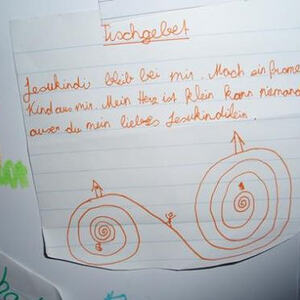 Tischgebet
Jesukindi bleib bei mir. Mach ein frome
Kind aus mir. Mein Herz ist klein kann niemand
auser du mein liebes Jesukindilein.